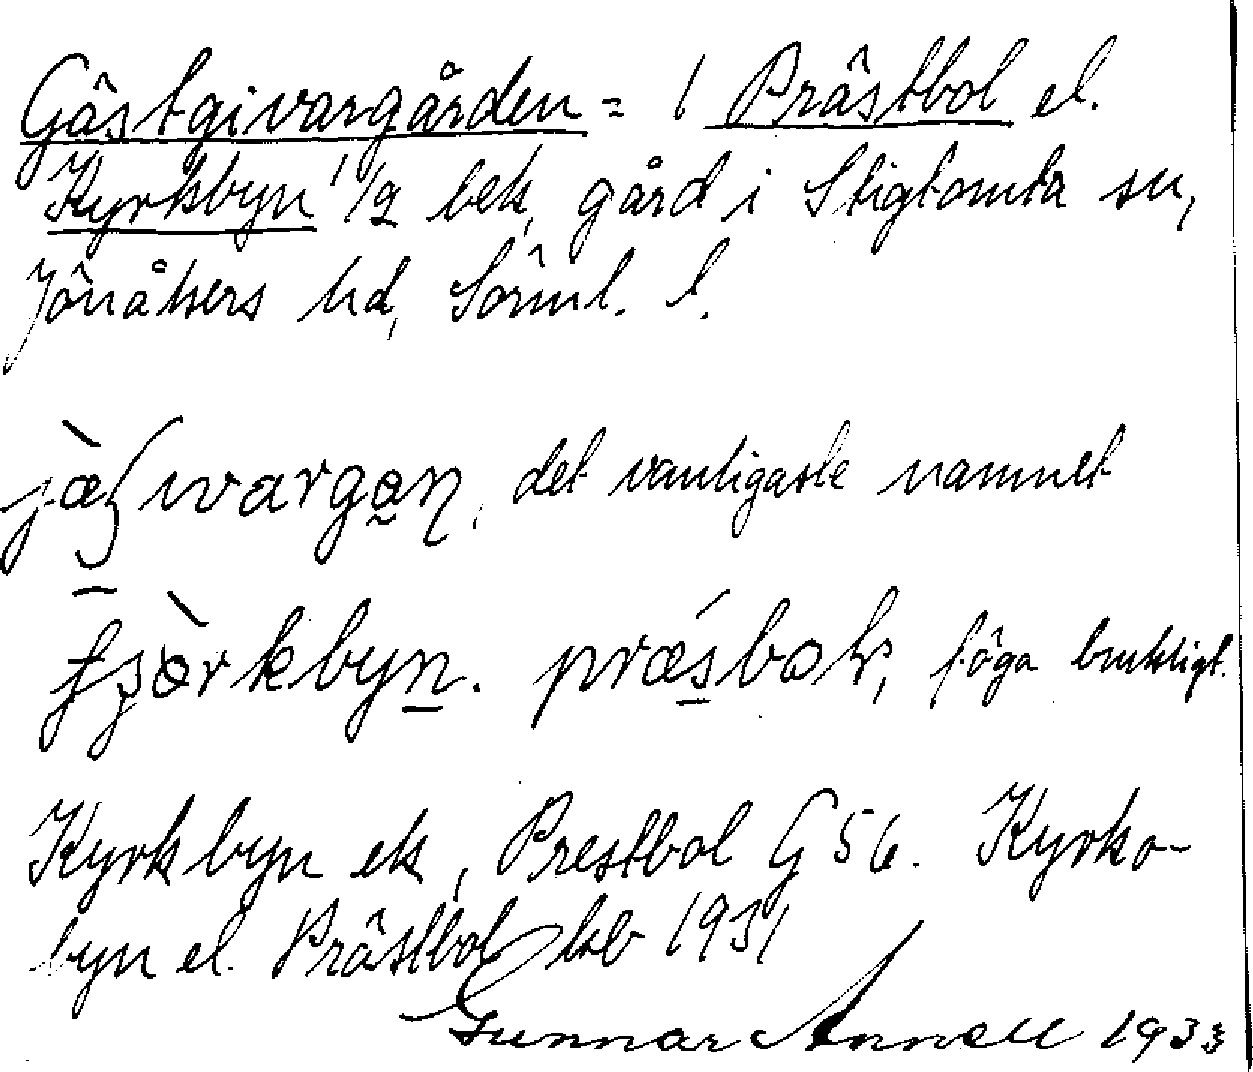 Gästgivargården = 1 Prästbol el.
Kyrkbyn 1/2 bek, gård i Stigtomta sn,
Jönåkers hd, Sörml. l.
jæ̀ʃwargəɳ, det vanligaste namnet
kyrkbyn. præsbok, föga brukligt.
Kyrkbyn ek, Prestbol G 56. Kyrko-
byn el. Prästbol kb 1931
Gunnar Annell 1933